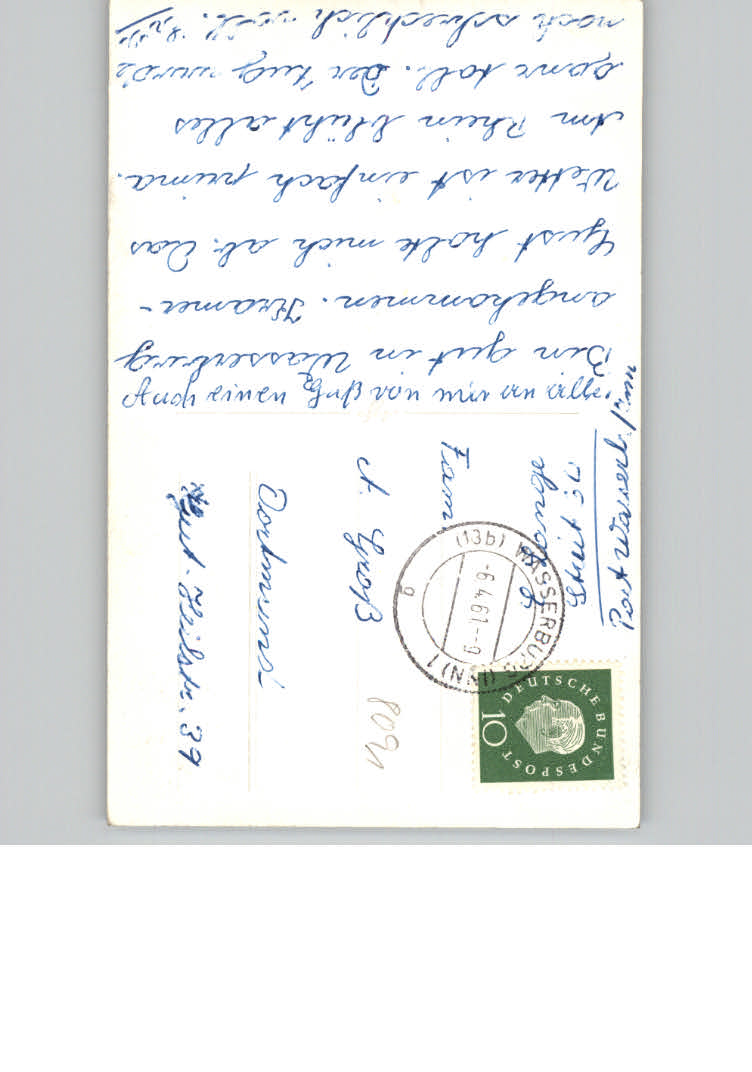 Bin gut in Wasserburg
angekommen. Kramer-
Gust holte mich ab. Das
Wetter ist einfach prima.
Am Rhein blüht alles
ganz toll. Der Zug wurde
noch schrecklich voll.
Auch einen Gruß von mir an alle!
Fam.
A. Groß
Dortmund
Gut-Heil-Str. 39
8091
Post
(13b) WASSERBURG (INN) 1
-6.4.61.-9
a
DEUTSCHE BUNDESPOST
10